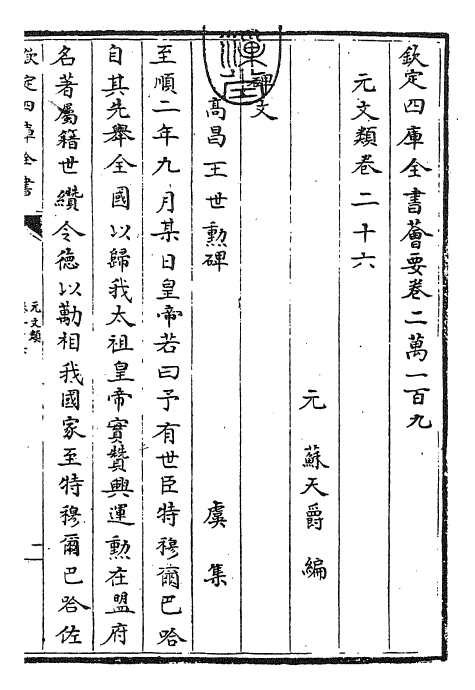 欽定四庫全書薈要卷二萬一百九
元文類卷二十六
元 蘇天爵 編
碑文
高昌王世勲碑 虞集
至順二年九月某日皇帝若曰予有世臣特穆爾巴哈
自其先舉全國以歸我太祖皇帝實贊興運勲在盟府
名著屬籍世纘令德以勱相我國家至特穆爾巴哈佐
欽定四庫全書
元文類
二